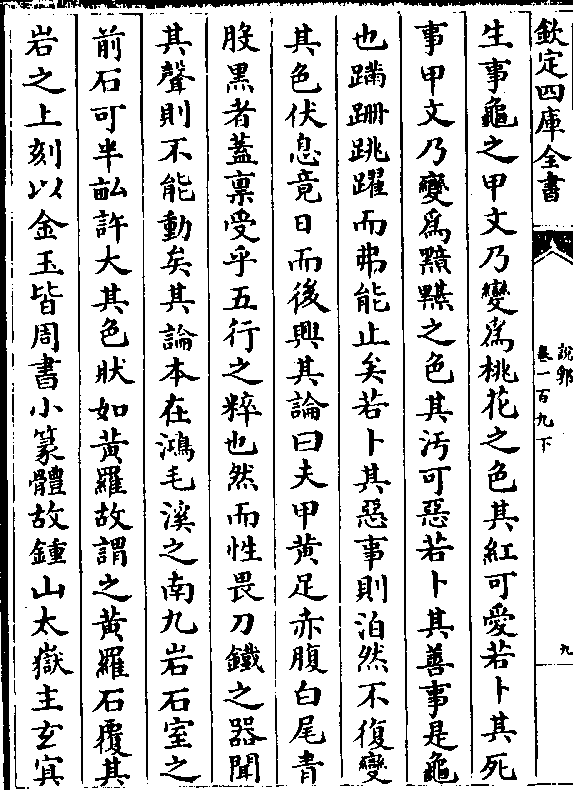 欽定四庫全書
說郛
卷一百九下
九
生事龜之甲文乃變爲桃花之色其紅可愛若卜其死
事甲文乃變爲黯黮之色其汚可惡若卜其善事是龜
也蹣跚跳躍而弗能止矣若卜其惡事則泊然不復變
其色伏息竟日而後興其論曰夫甲黃足赤腹白尾青
股黑者蓋禀受乎五行之粹也然而性畏刀鐵之器聞
其聲則不能動矣其論本在鴻毛溪之南九岩石室之
前石可半畝許大其色狀如黃羅故謂之黃羅石覆其
岩之上刻以金玉皆周書小篆體故鍾山太嶽主玄寘